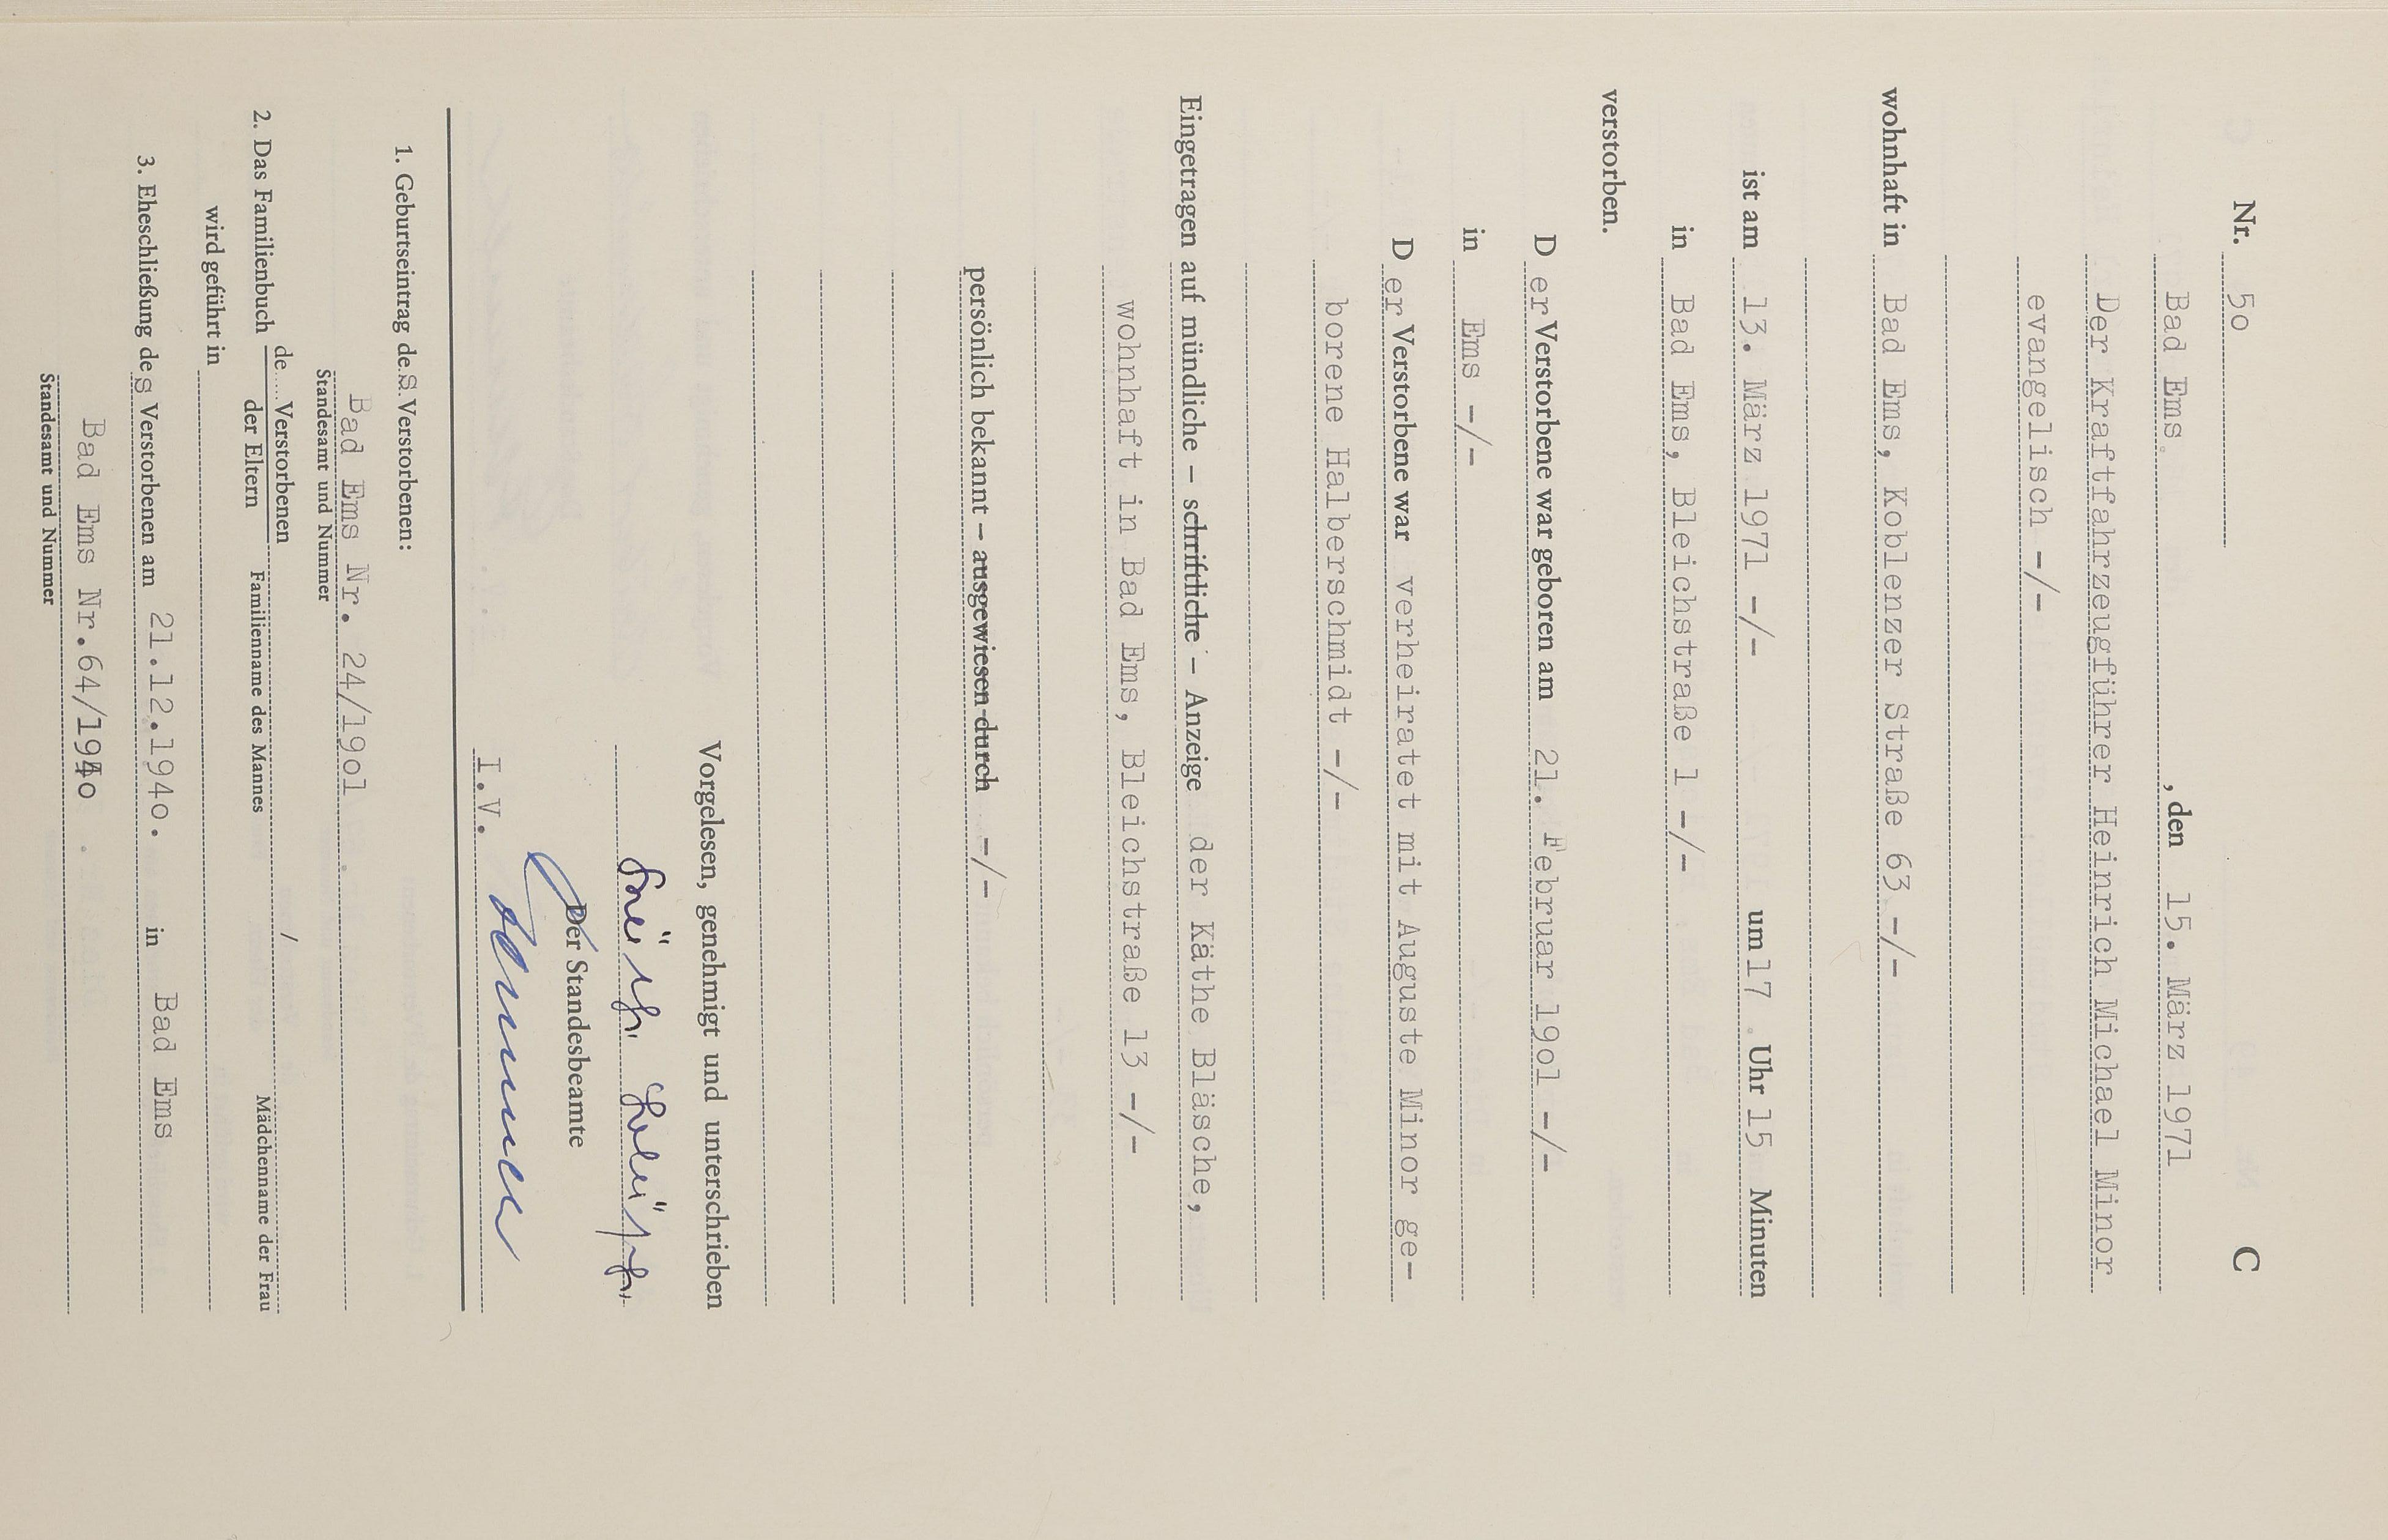 Nr. 5o C
Bad Ems , den 15. März 1971
Der Kraftfahrzeugführer Heinrich Michael Minor
evangelisch -/-
wohnhaft in Bad Ems, Koblenzer Straße 63 -/-
ist am 13. März 1971 -/- um 17 Uhr 15 Minuten
in Bad Ems, Bleichstraße 1 -/-
verstorben.
D er Verstorbene war geboren am 21. Februar 19o1 -/-
in Ems -/-
D er Verstorbene war verheiratet mit Auguste Minor ge-
borene Halberschmidt -/-
Eingetragen auf mündliche – schriftliche – Anzeige der Käthe Bläsche,
wohnhaft in Bad Ems, Bleichstraße 13 -/-
persönlich bekannt – ausgewiesen durch -/-
Vorgelesen, genehmigt und unterschrieben
Der Standesbeamte
I.V.
1. Geburtseintrag des Verstorbenen:
Bad Ems Nr. 24/19o1
Standesamt und Nummer
2. Das Familienbuch de.... Verstorbenen
der Eltern
/
Familienname des Mannes Mädchenname der Frau
wird geführt in
3. Eheschließung des Verstorbenen am 21.12.194o. in Bad Ems
Bad Ems Nr.64/194o
Standesamt und Nummer